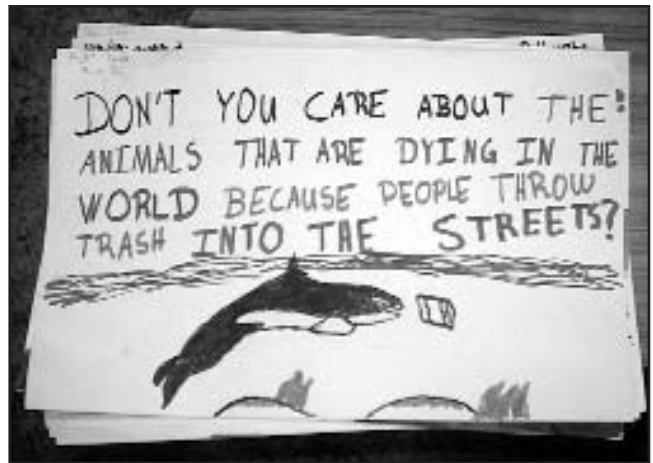 DON'T YOU CARE ABOUT THE
ANIMALS THAT ARE DYING IN THE
WORLD BECAUSE PEOPLE THROW
TRASH INTO THE STREETS?